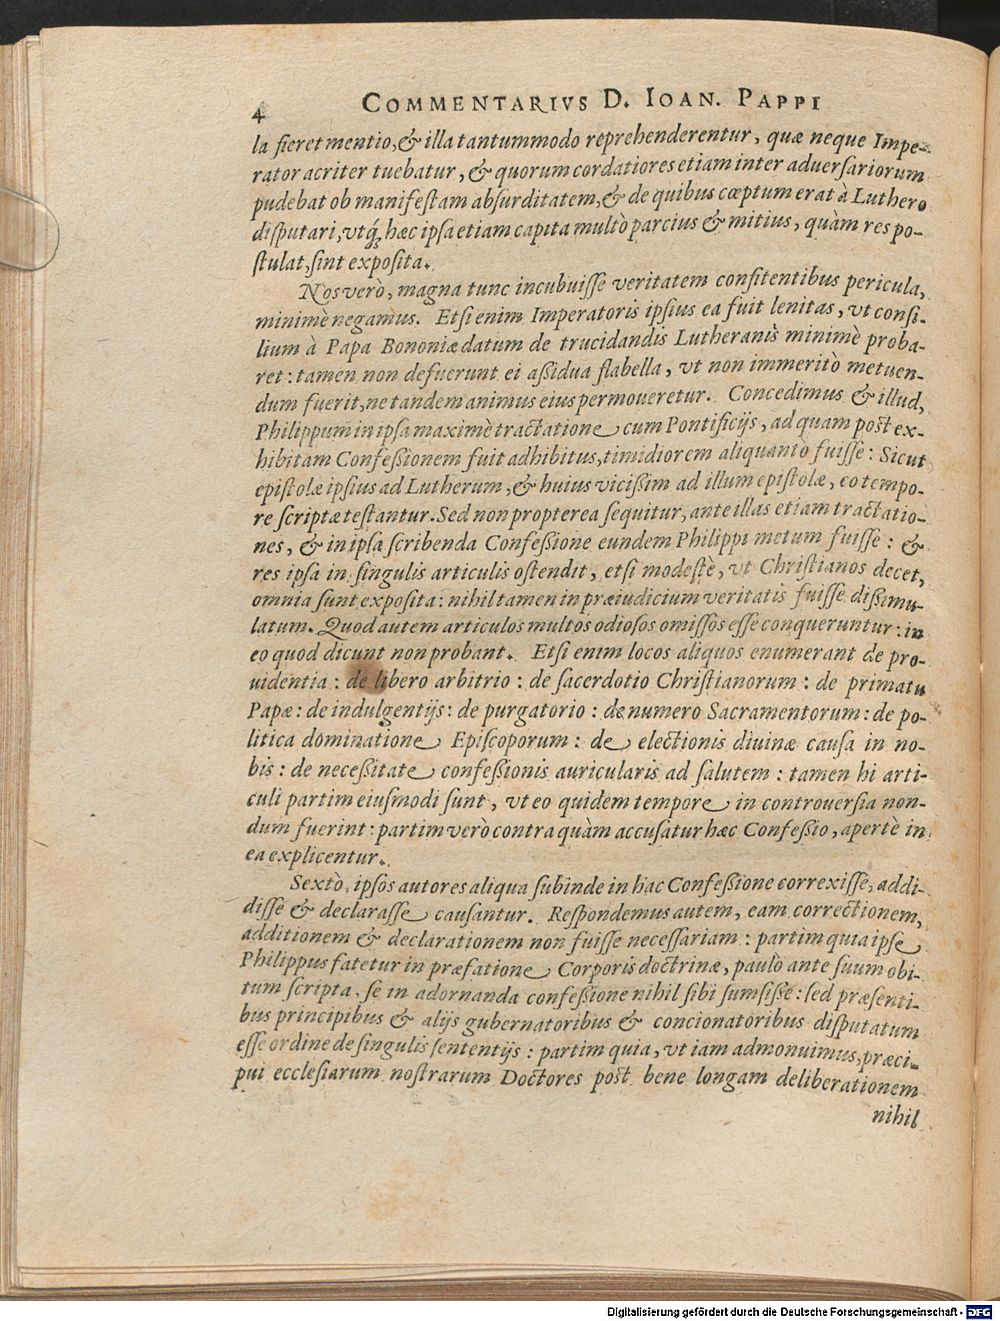 4 COMMENTARIVS D. IOAN. PAPPI
la fieret mentio, & illa tantummodo reprehenderentur, quæ neque Impe-
rator acriter tuebatur, & quorum cordatiores etiam inter aduersariorum
pudebat ob manifestam absurditatem, & de quibus cœptum erat à Luthero
disputari, vtq́; hæc ipsa etiam capita multò parcius & mitius, quàm res po-
stulat, sint exposita.
Nos verò, magna tunc incubuisse veritatem confitentibus pericula,
minimè negamus. Etsi enim Imperatoris ipsius ea fuit lenitas, vt consi-
lium à Papa Bononiæ datum de trucidandis Lutheranis minimè proba-
ret: tamen non defuerunt ei aßidua flabella, vt non immeritò metuen-
dum fuerit, ne tandem animus eius permoueretur. Concedimus & illud,
Philippum in ipsa maximè tractatione cum Pontificijs, ad quam post ex-
hibitam Confeßionem fuit adhibitus, timidiorem aliquantò fuisse: Sicut
epistolæ ipsius ad Lutherum, & huius vicißim ad illum epistolæ, eo tempo-
re scriptæ testantur. Sed non propterea sequitur, ante illas etiam tractatio-
nes, & in ipsa scribenda Confeßione eundem Philippi metum fuisse: &
res ipsa in singulis articulis ostendit, etsi modestè, vt Christianos decet,
omnia sunt exposita: nihil tamen in præiudicium veritatis fuisse dißimu-
latum. Quod autem articulos multos odiosos omissos esse conqueruntur: in
eo quod dicunt non probant. Etsi enim locos aliquos enumerant de pro-
uidentia: de libero arbitrio: de sacerdotio Christianorum: de primatu
Papæ: de indulgentijs: de purgatorio: de numero Sacramentorum: de po-
litica dominatione Episcoporum: de electionis diuinæ causa in no-
bis: de neceßitate confeßionis auricularis ad salutem: tamen hi arti-
culi partim eiusmodi sunt, vt eo quidem tempore in controuersia non-
dum fuerint: partim verò contra quàm accusatur hæc Confeßio, apertè in
ea explicentur.
Sextò, ipsos autores aliqua subinde in hac Confeßione correxisse, addi-
disse & declarasse causantur. Respondemus autem, eam correctionem,
additionem & declarationem non fuisse necessariam: partim quia ipse
Philippus fatetur in præfatione Corporis doctrinæ, paulò ante suum obi-
tum scripta, se in adornanda confeßione nihil sibi sumsisse: sed præsenti-
bus principibus & alijs gubernatoribus & concionatoribus disputatum
esse ordine de singulis sententijs: partim quia, vt iam admonuimus, præci-
pui ecclesiarum nostrarum Doctores post bene longam deliberationem
nihil
Digitalisierung gefördert durch die Deutsche Forschungsgemeinschaft - DFG